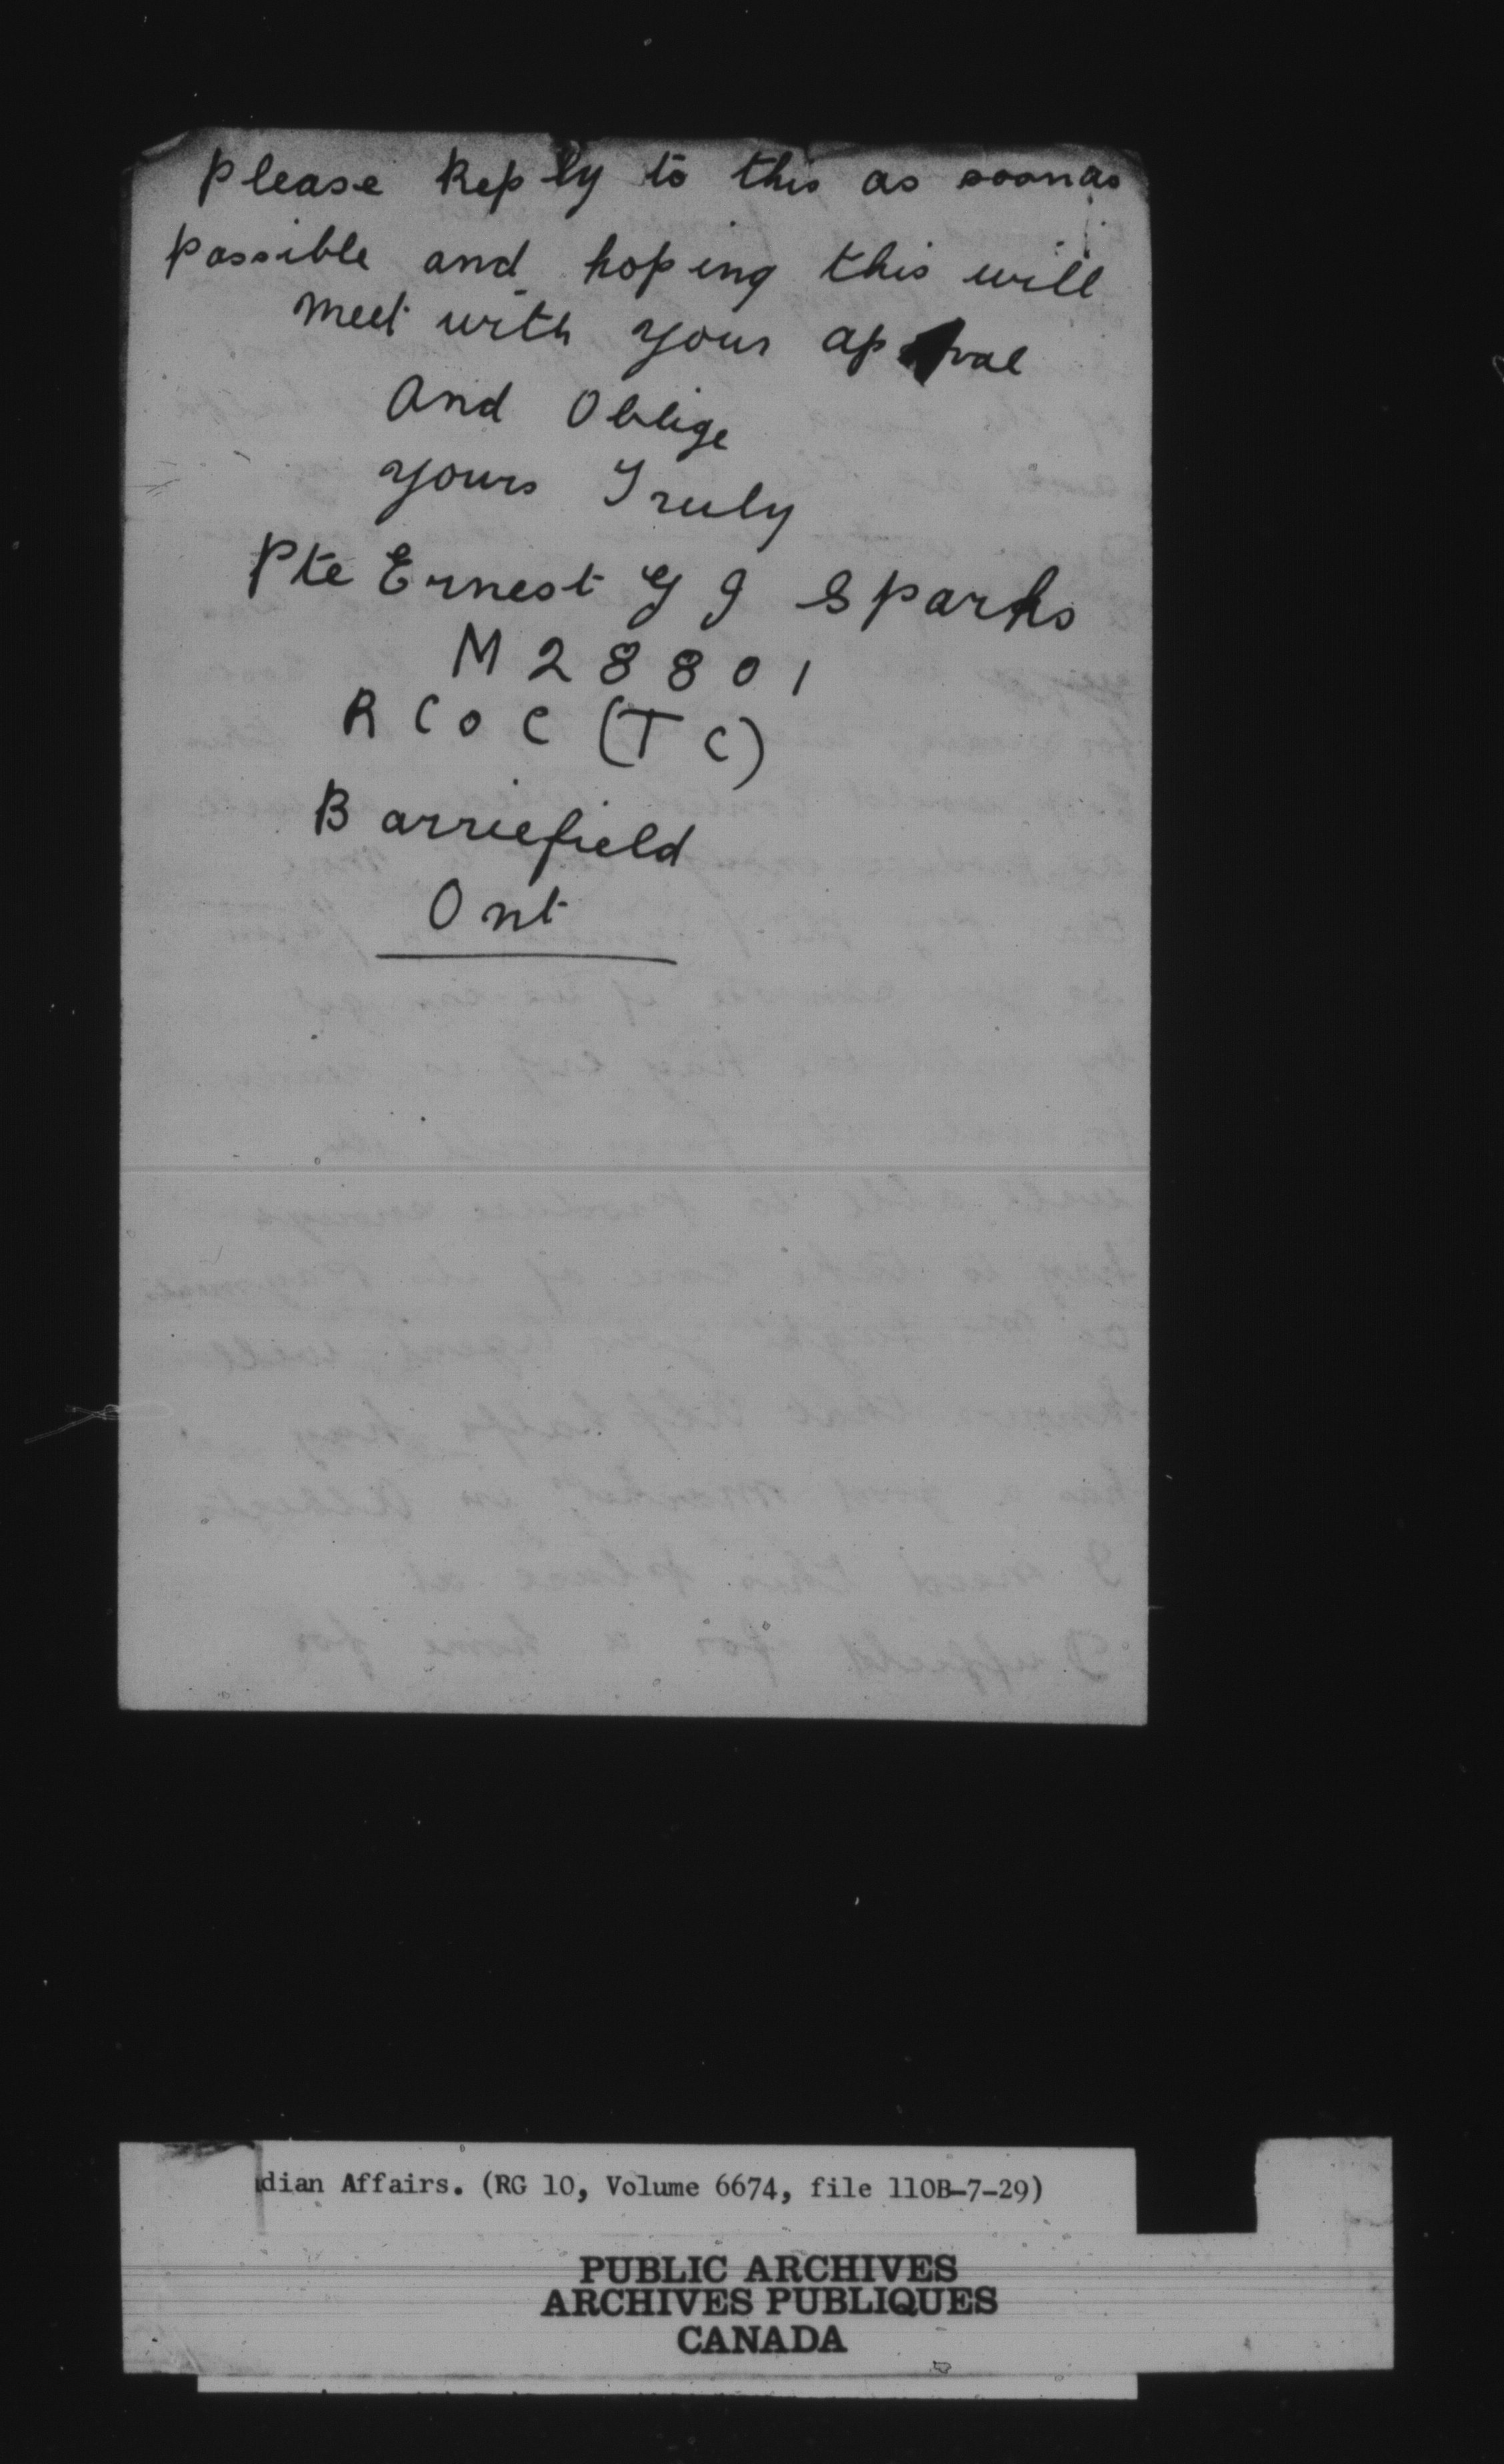 Please Reply to this as soon as
possible and hoping this will
meet with your ap val
And Oblige
yours Truly
Pte Ernest G G Sparks
M 2 8 8 0 1
R C O C (T C)
Barriefield
Ont
dian Affairs. (RG 10, Volume 6674, file 110B-7-29)
PUBLIC ARCHIVES
ARCHIVES PUBLIQUES
CANADA